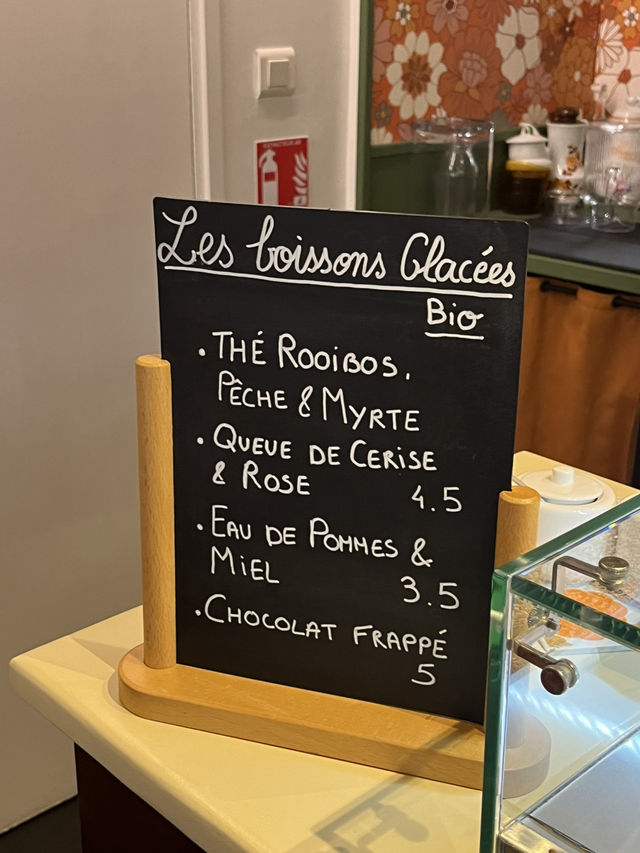 EXTINCTEUR
Les boissons Glacées
Bio
. THÉ ROOIBOS,
PÊCHE & MYRTE
. QUEUE DE CERISE
& ROSE 4.5
. EAU DE POMMES &
MIEL 3.5
. CHOCOLAT FRAPPÉ
5